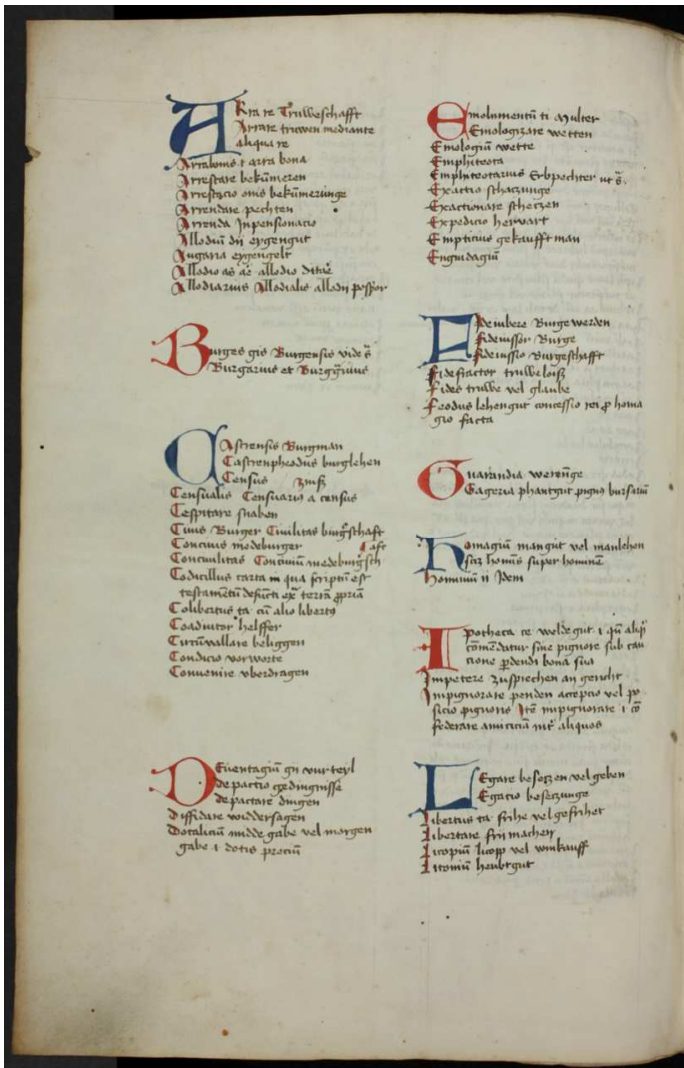 ARra re Truweschafft
Arrare truwen mediante
aliqua re
Arrabonis t arra bona
Arrestare bekūmeren
Arrestacio onis bekūmerunge
Arrendare pechten
Arrenda Inpensionacio
Allodiū dij eygengut
Augaria eygengelt
Allodio as are allodio ditare
Allodiarius Allodialis allodij
Burges gis Burgensis vide
Burgarius et
CAstrensis Burgman
Castrenpheodus burglehen
Census zinß
Censualis Censuario a census
Cespitare snaben
Ciuis Burger Ciuilitas burgschaft
Conciuis medeburger
Conciuilitas Conciuiū medeburgsch
aft
Codicillus carta in qua scriptū est
testamentū defuncti
Colibertus ta cū alio libertus
Coadiutor helffer
Circūvallare beliggen
Condicio vorworte
Conuenire vberdragen
DEiuentagiū gij vur teyl
depactio gedingnisse
depactare dingen
diffidare widdersagen
Dotaliciū midde gabe vel morgen
gabe i dotis preciū
Emolumentū ti Multer
Emologizare wetten
Emologiū wette
Emphiteota
Emphiteotarius Erbpechter ut
Exactio schaczunge
Exactionare scheczen
Expedicio hervart
Empticius gekaufft man
Enguidagiū
FIdeiubere Burge werden
fideiussor Burge
fideiussio Burgeschafft
fidefractor truwe loiß
Fides truwe vel glaube
Feodus lehengut concessio rei ꝓ homa
gio facta
Guarandia werūnge
Gageria phantgut pignus bursariū
Homagiū mangut vel manlehen
hominis super hominem
Hominiū ij Idem
Ipotheca ce weldegut i qn̄
cōmendatur sine pignore sub cau
cione ꝑdendi bona sua
Impetere zusprechen an gericht
Inpignorare penden accepcio vel po
sicio pignoris Itē inpignorare i cō
federare amiciciā int aliquos
LEgare beseczen vel geben
Egacio beseczunge
Libertus ta frihe vel gefrihet
Libertare frij machen
Licopiū licopp vel winkauff
Litoniū heubtgut